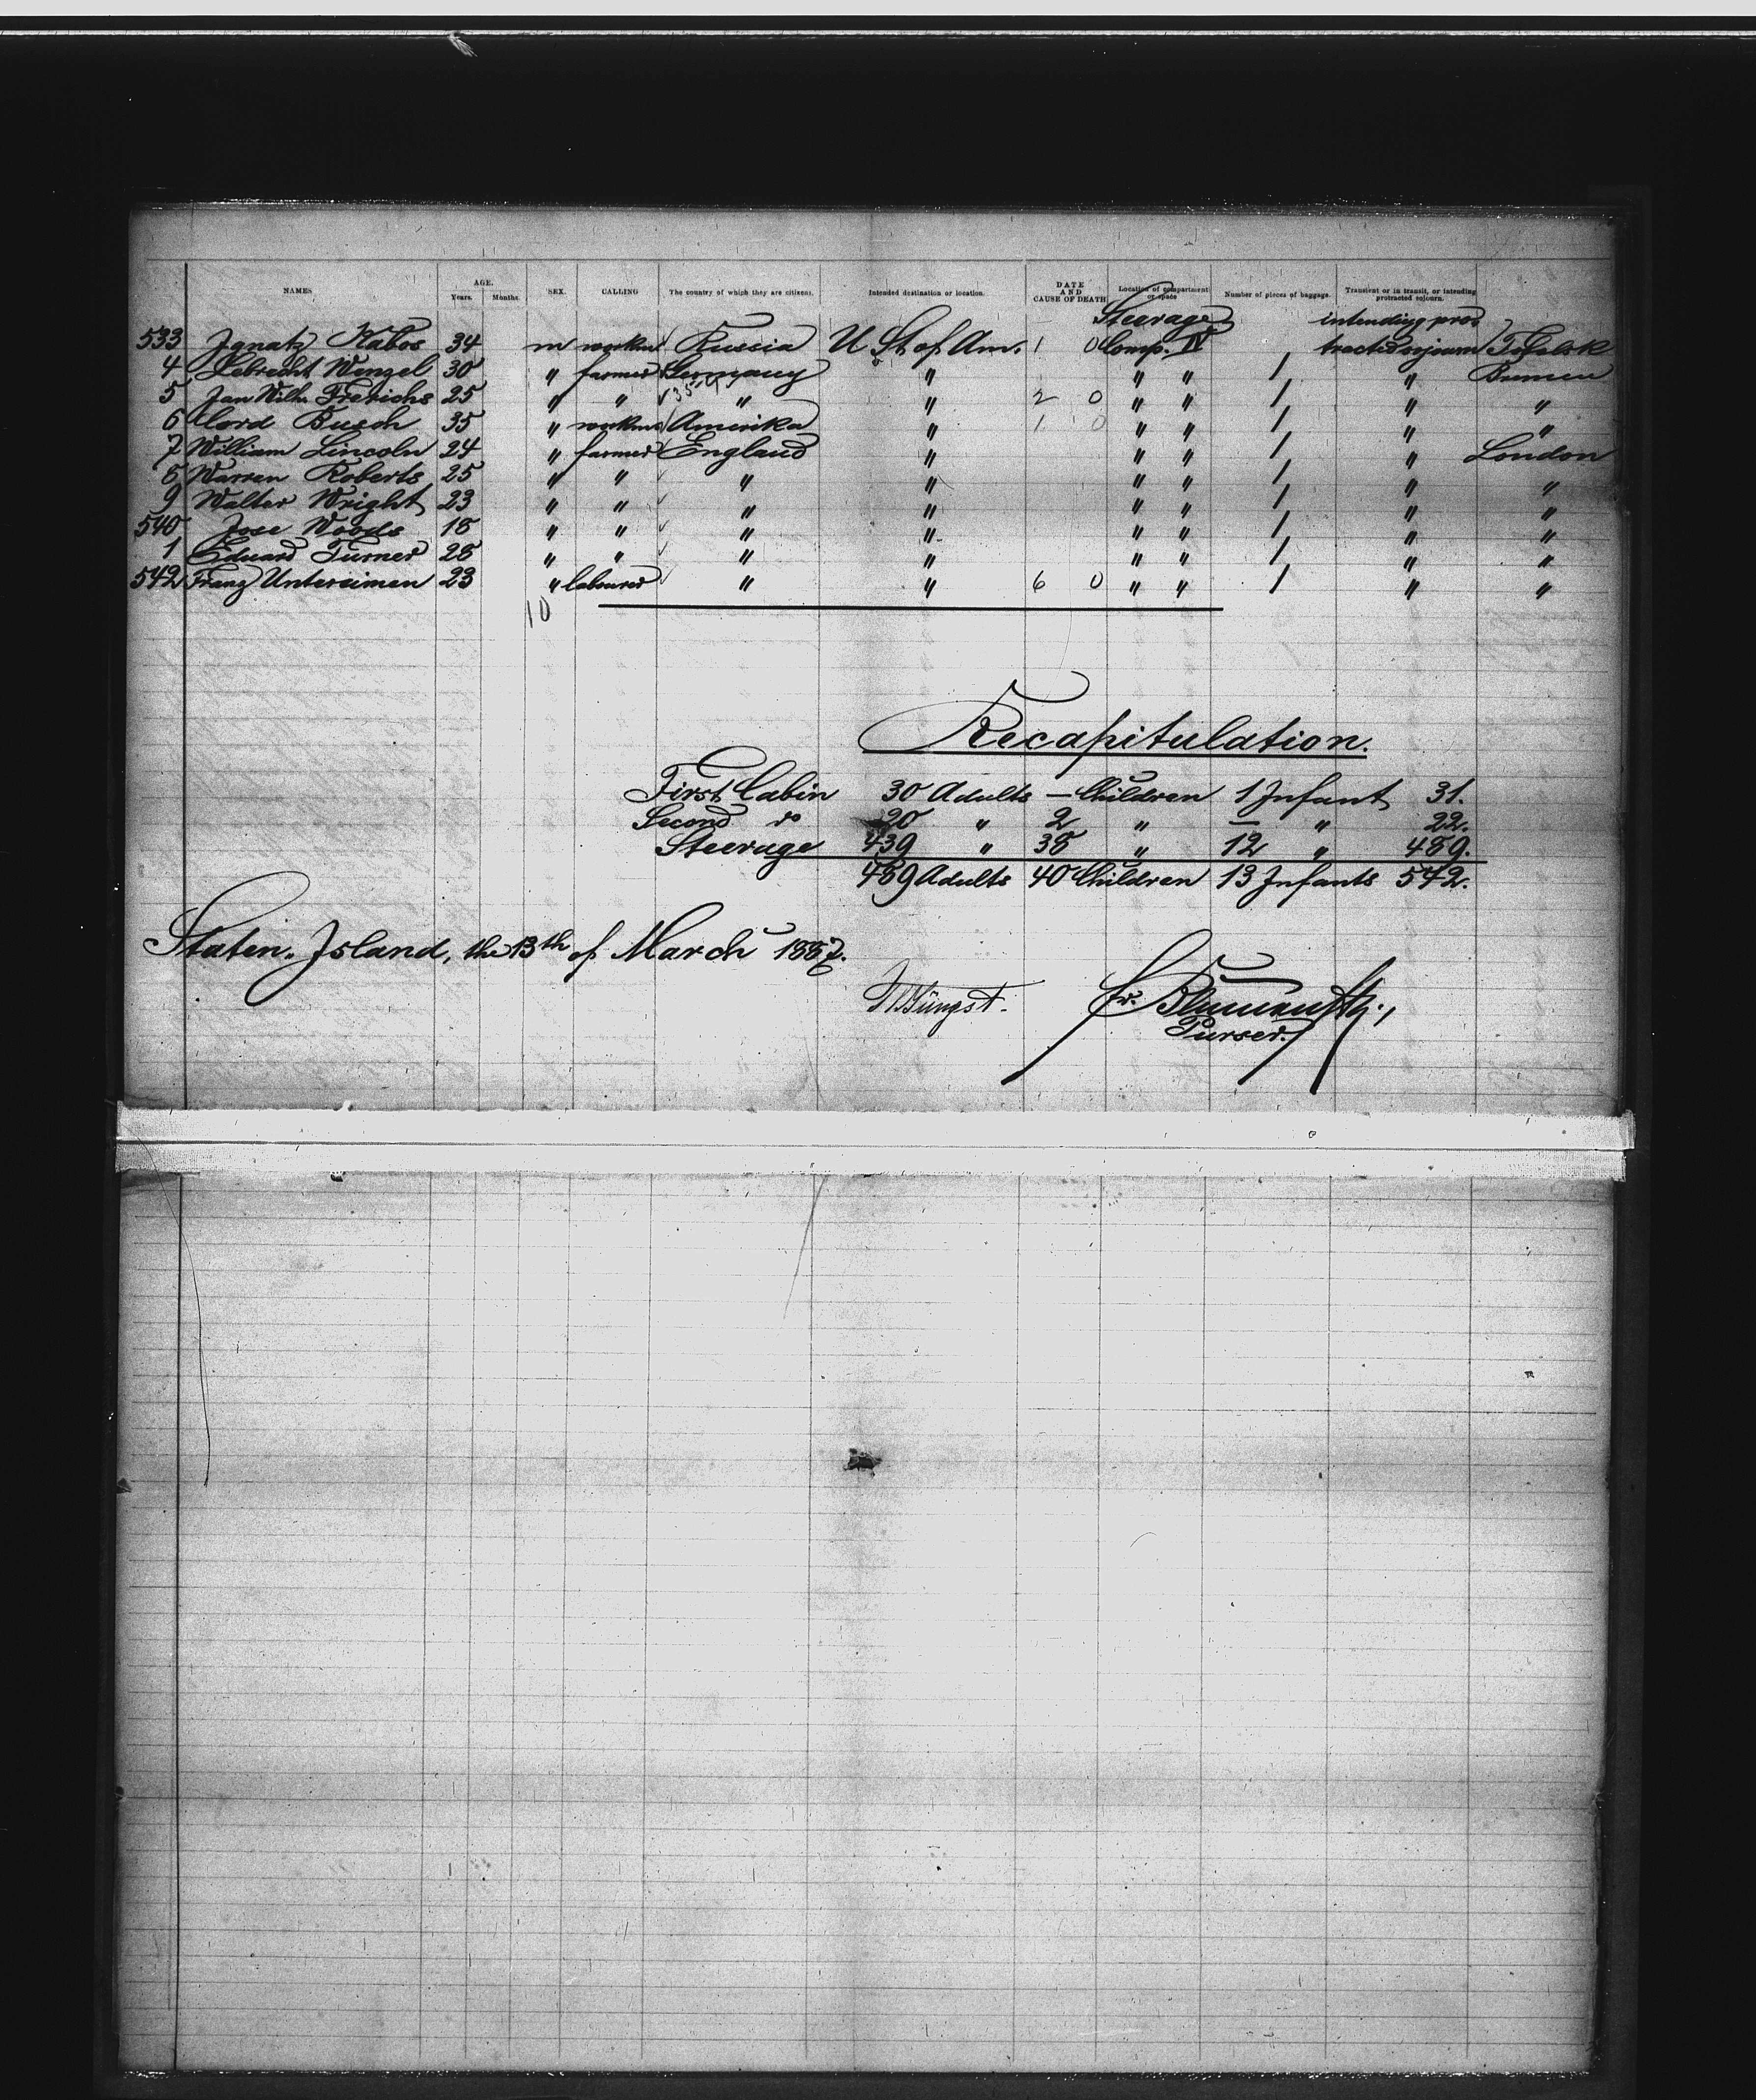 NAMES AGE. Years. Months. SEX. CALLING The country of which they are citizens. Intended destination or location. DATE AND CAUSE OF DEATH Location of compartment or space Number of pieces of baggage. Transient or in transit, or intending protracted sojourn.
Steerage intending pro=
533 Ignatz Kabos 34 m workm Russia U St of Am. 1 0 Comp. IV tracted sojourn
4 Lebrecht Wenzel 30 " farmer Germany " " " 1 " Bremen
5 Jan Wilh. Frerichs 25 " " " " 2 0 " " 1 " "
6 Cord Busch 35 " workm Amerika " 1 0 " " 1 " "
7 William Lincoln 24 " farmer England " " " 1 " London
8 Warren Roberts 25 " " " " " " 1 " "
9 Walter Wright 23 " " " " " " 1 " "
540 Jose Woods 18 " " " " " " 1 " "
1 Eduard Turner 28 " " " " " " 1 " "
542 Franz Untereimen 23 " labourer " " 6 0 " " 1 " "
10
Recapitulation.
First Cabin 30 Adults — Children 1 Infant 31.
Second do 20 " 2 " — " 22.
Steerage 439 " 38 " 12 " 489.
489 Adults 40 Children 13 Infants 542.
Staten-Island, the 13th of March 1887.
Jüngst.
Purser.